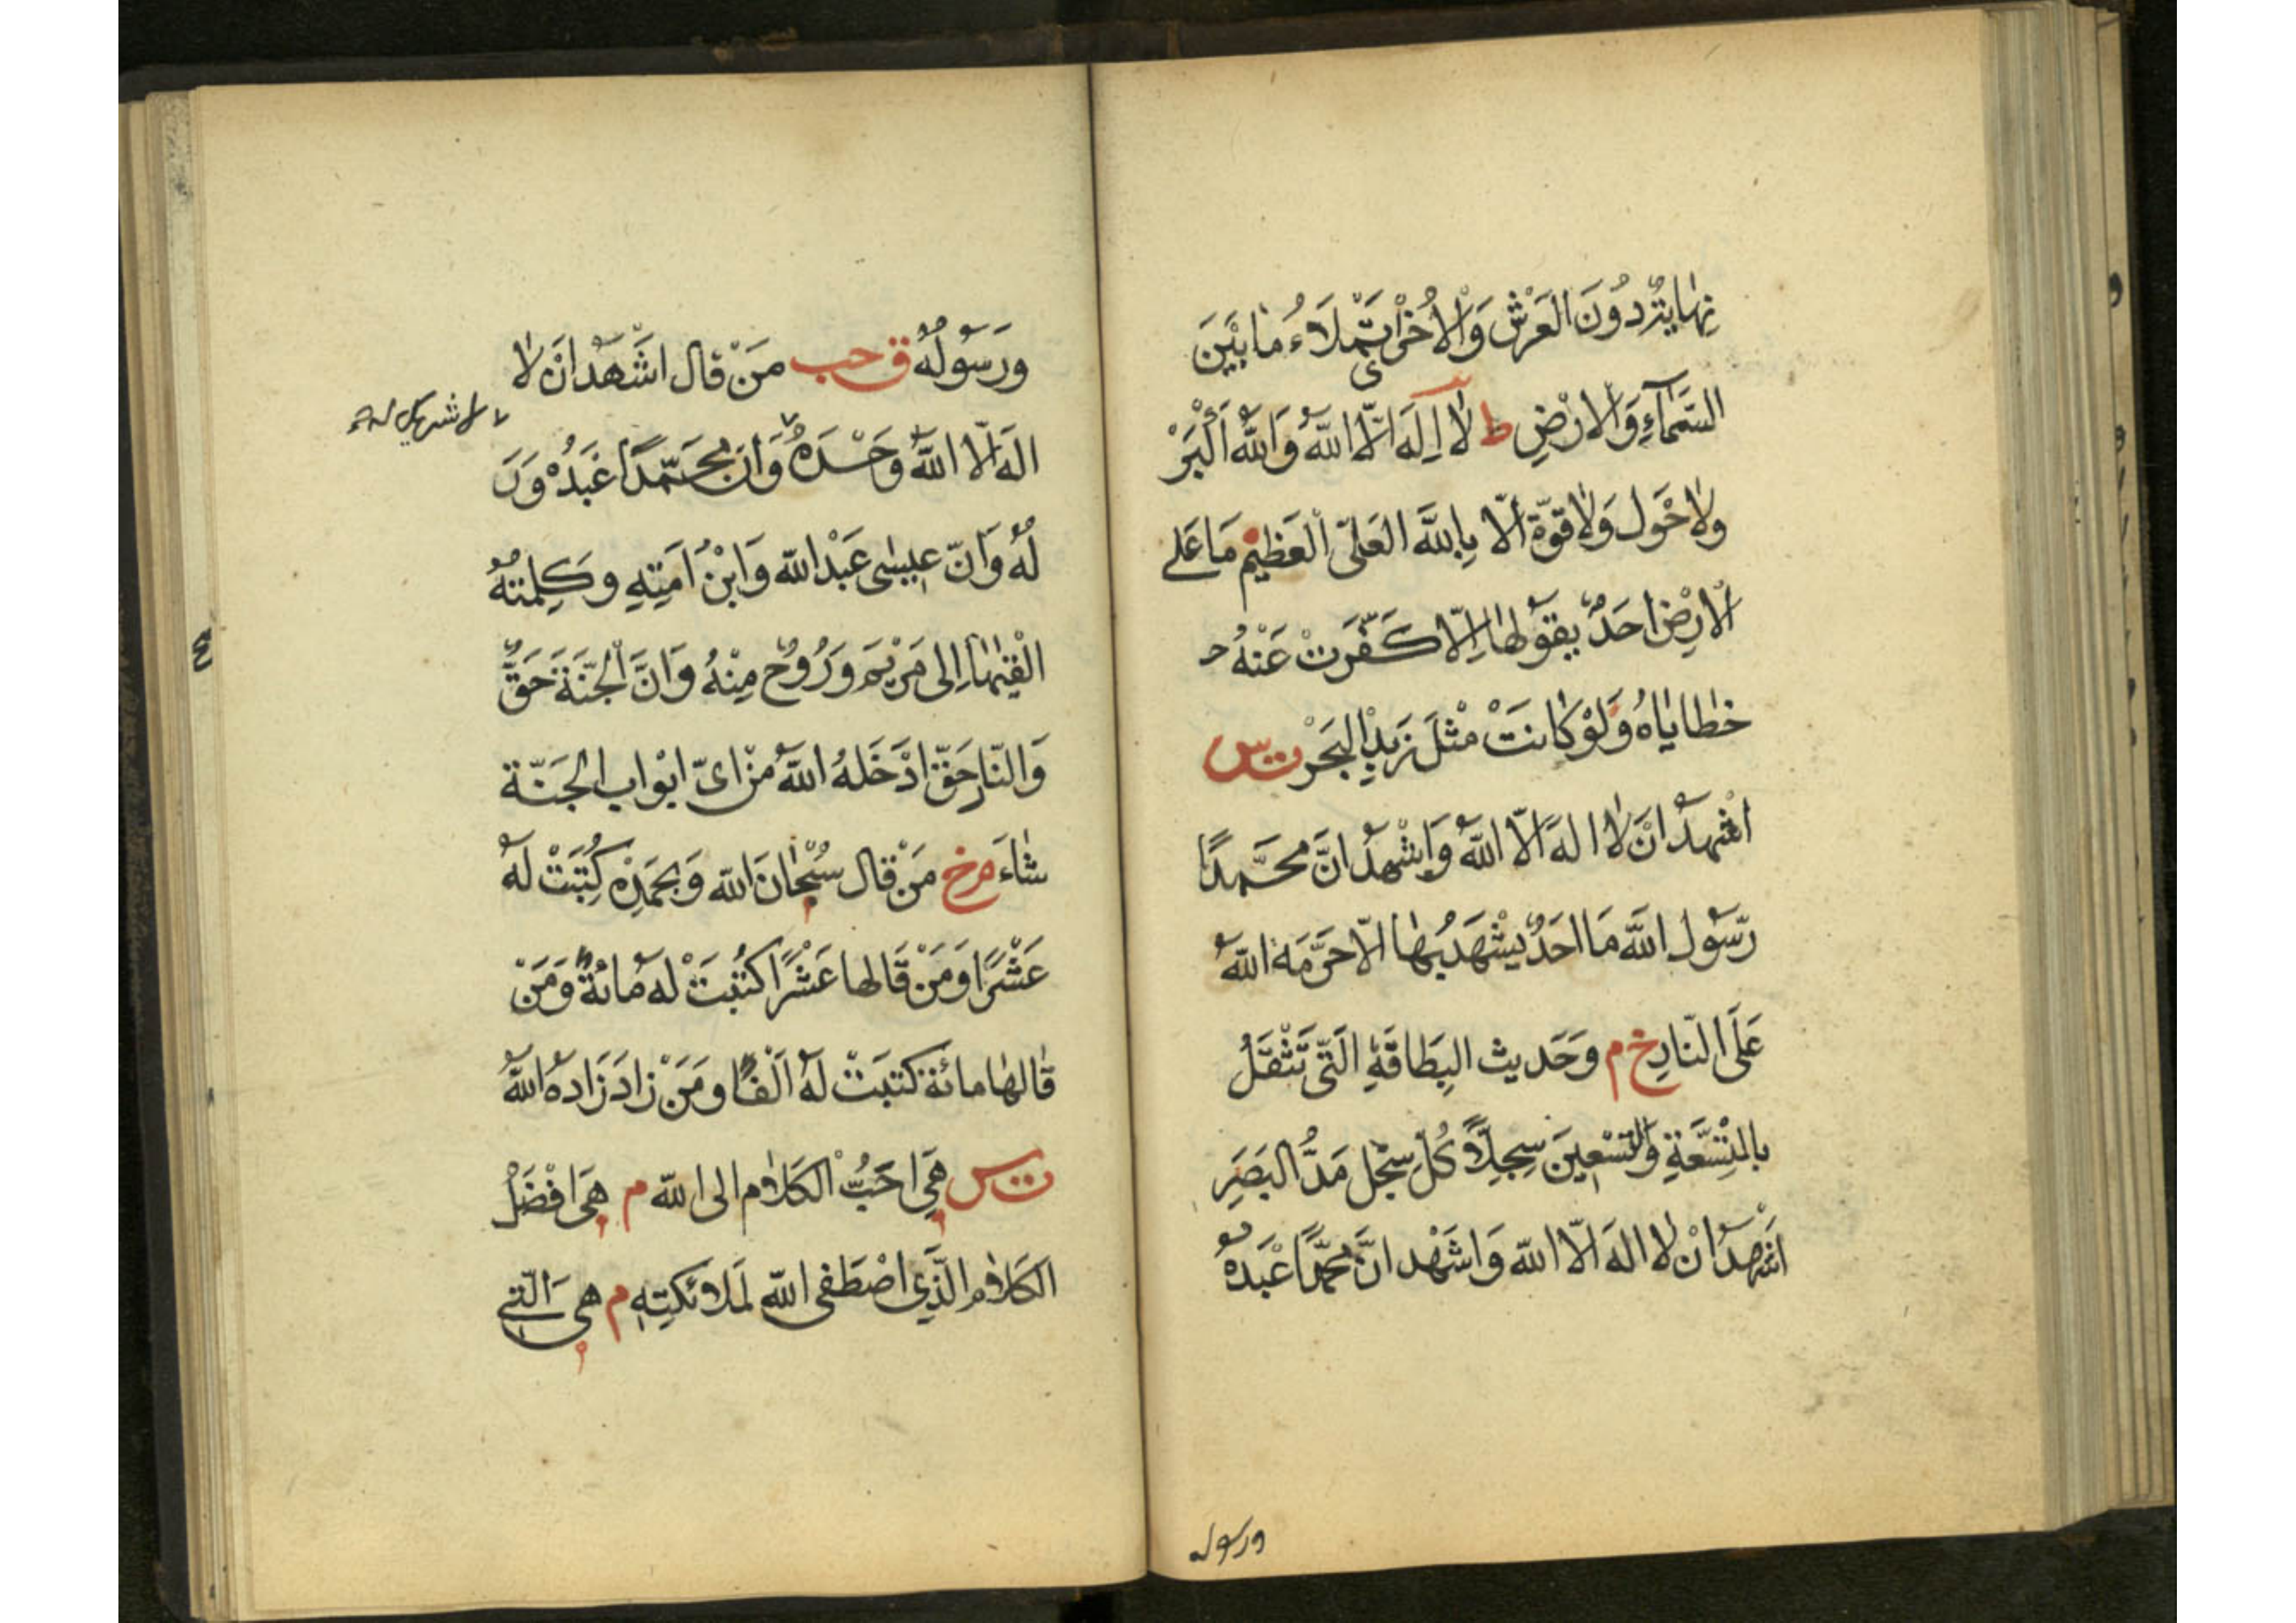 نهاية دون العرش والأخرى تملاء ما بين
السماء والارض ط لا اله الا الله والله اكبر
ولا حول ولا قوة الا بالله العلي العظيم ما على
الارض احد يقولها الا كفرت عنه
خطاياه ولو كانت مثل زبد البحر ت س
اشهد ان لا اله الا الله واشهد ان محمدا
رسول الله ما احد يشهد بها الا حرمه الله
على النار خ م وحديث البطاقة التي تثقل
بالتسعة والتسعين سجلا كل سجل مد البصر
اشهد ان لا اله الا الله واشهد ان محمدا عبده
ورسوله
ورسوله ق حب من قال اشهد ان لا
لا شريك له
اله الا الله وحده وان محمدا عبده ورسو
له وان عيسى عبد الله وابن امته وكلمته
القيها الى مريم وروح منه وان الجنة حق
والنار حق ادخله الله من اى ابواب الجنة
شاء م خ من قال سبحان الله وبحمده كتبت له
عشرا ومن قالها عشرا كتبت له مائة ومن
قالها مائة كتبت له الفا ومن زاد زاده الله
ت س هي احب الكلام الى الله م هي افضل
الكلام الذي اصطفى الله لملائكته م هي التي